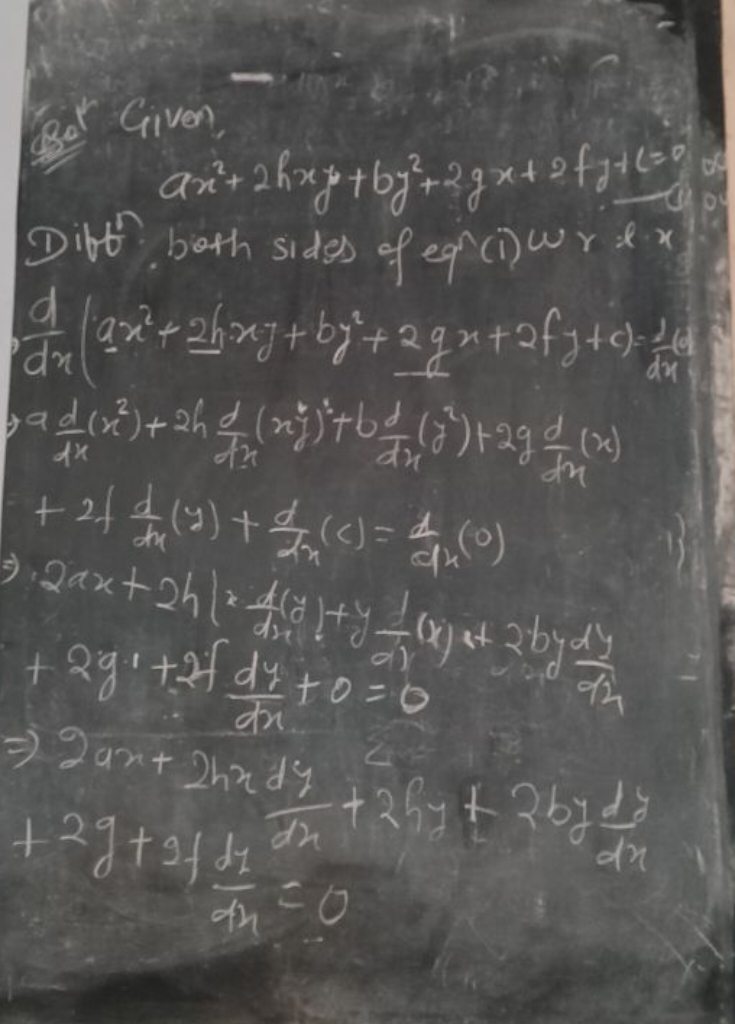 Sol Given,
ax²+2hxy+by²+2gx+2fy+c=0 —(i)
Diffⁿ. both sides of eqⁿ(i) w r t x
d/dx(ax²+2hxy+by²+2gx+2fy+c)=d/dx(0)
⇒a d/dx(x²)+2h d/dx(xy)+b d/dx(y²)+2g d/dx(x)
+2f d/dx(y)+d/dx(c)=d/dx(0)
⇒2ax+2h{x d/dx(y)+y d/dx(x)}+2by dy/dx
+2g·1+2f dy/dx+0=0
⇒2ax+2hx dy/dx+2hy+2by dy/dx
+2g+2f dy/dx=0